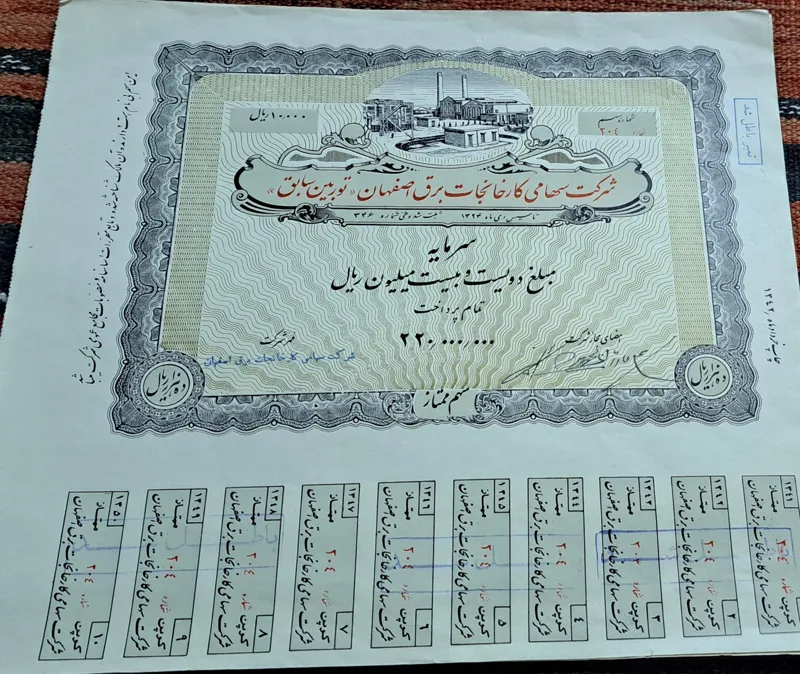 ۱۰,۰۰۰ ریال
شماره سهم
شماره ۲۰۴
تمبر باطل شد
شرکت سهامی کارخانجات برق اصفهان «توربین سابق»
تاسیس دی ماه ۱۳۲۴ ثبت شده طی شماره ۳۴۶
سرمایه
مبلغ دویست و بیست میلیون ریال
تمام پرداخت
۲۲۰,۰۰۰,۰۰۰
امضای مجاز شرکت
مهر شرکت
شرکت سهامی کارخانجات برق اصفهان
ده هزار ریال
ده هزار ریال
سهم ممتاز
۱۳۴۱ ممتاز
شرکت سهامی کارخانجات برق اصفهان
شماره ۲۰۴
۱۳۴۲ ممتاز
شرکت سهامی کارخانجات برق اصفهان
کوپن ۲ شماره ۲۰۴
۱۳۴۳ ممتاز
شرکت سهامی کارخانجات برق اصفهان
کوپن ۳ شماره ۲۰۴
۱۳۴۴ ممتاز
شرکت سهامی کارخانجات برق اصفهان
کوپن ۴ شماره ۲۰۴
۱۳۴۵ ممتاز
شرکت سهامی کارخانجات برق اصفهان
کوپن ۵ شماره ۲۰۴
۱۳۴۶ ممتاز
شرکت سهامی کارخانجات برق اصفهان
کوپن ۶ شماره ۲۰۴
۱۳۴۷ ممتاز
شرکت سهامی کارخانجات برق اصفهان
کوپن ۷ شماره ۲۰۴
۱۳۴۸ ممتاز
شرکت سهامی کارخانجات برق اصفهان
کوپن ۸ شماره ۲۰۴
۱۳۴۹ ممتاز
شرکت سهامی کارخانجات برق اصفهان
کوپن ۹ شماره ۲۰۴
۱۳۵۰ ممتاز
شرکت سهامی کارخانجات برق اصفهان
کوپن ۱۰ شماره ۲۰۴
باطل شد